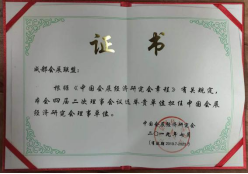 证 书
成都会展联盟：
根据《中国会展经济研究会章程》有关规定，
本会四届二次理事会议选举贵单位担任中国会展
经济研究会理事单位。
中国会展经济研究会
二〇一九年七月